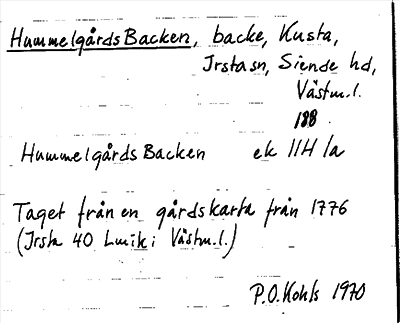 HummelgårdsBacken, backe, Kusta,
Irstasn, Siende hd,
Västm.l.
188
HummelgårdsBacken ek 11H 1a
Taget från en gårdskarta från 1776
(Irsta 40 Lmik i Västm.l.)
P.O.Kohls 1970